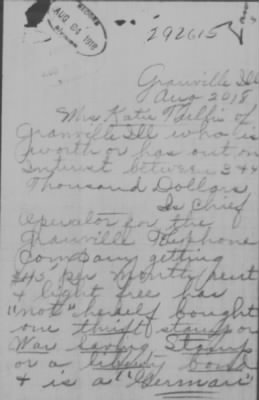 AUG 24 1918
292615
Granville Ill
Aug 2018
Mrs Katie of
Granville Ill who is
worth or has out on
Interest between 3 & 4
Thousand Dollars
Is Chief
Operator for the
Granville Telephone
Company getting
$45 per month rent
& light free has
"not" herself bought
one thrift stamp or
War Saving Stamp
or a liberty bond
& is a "German"